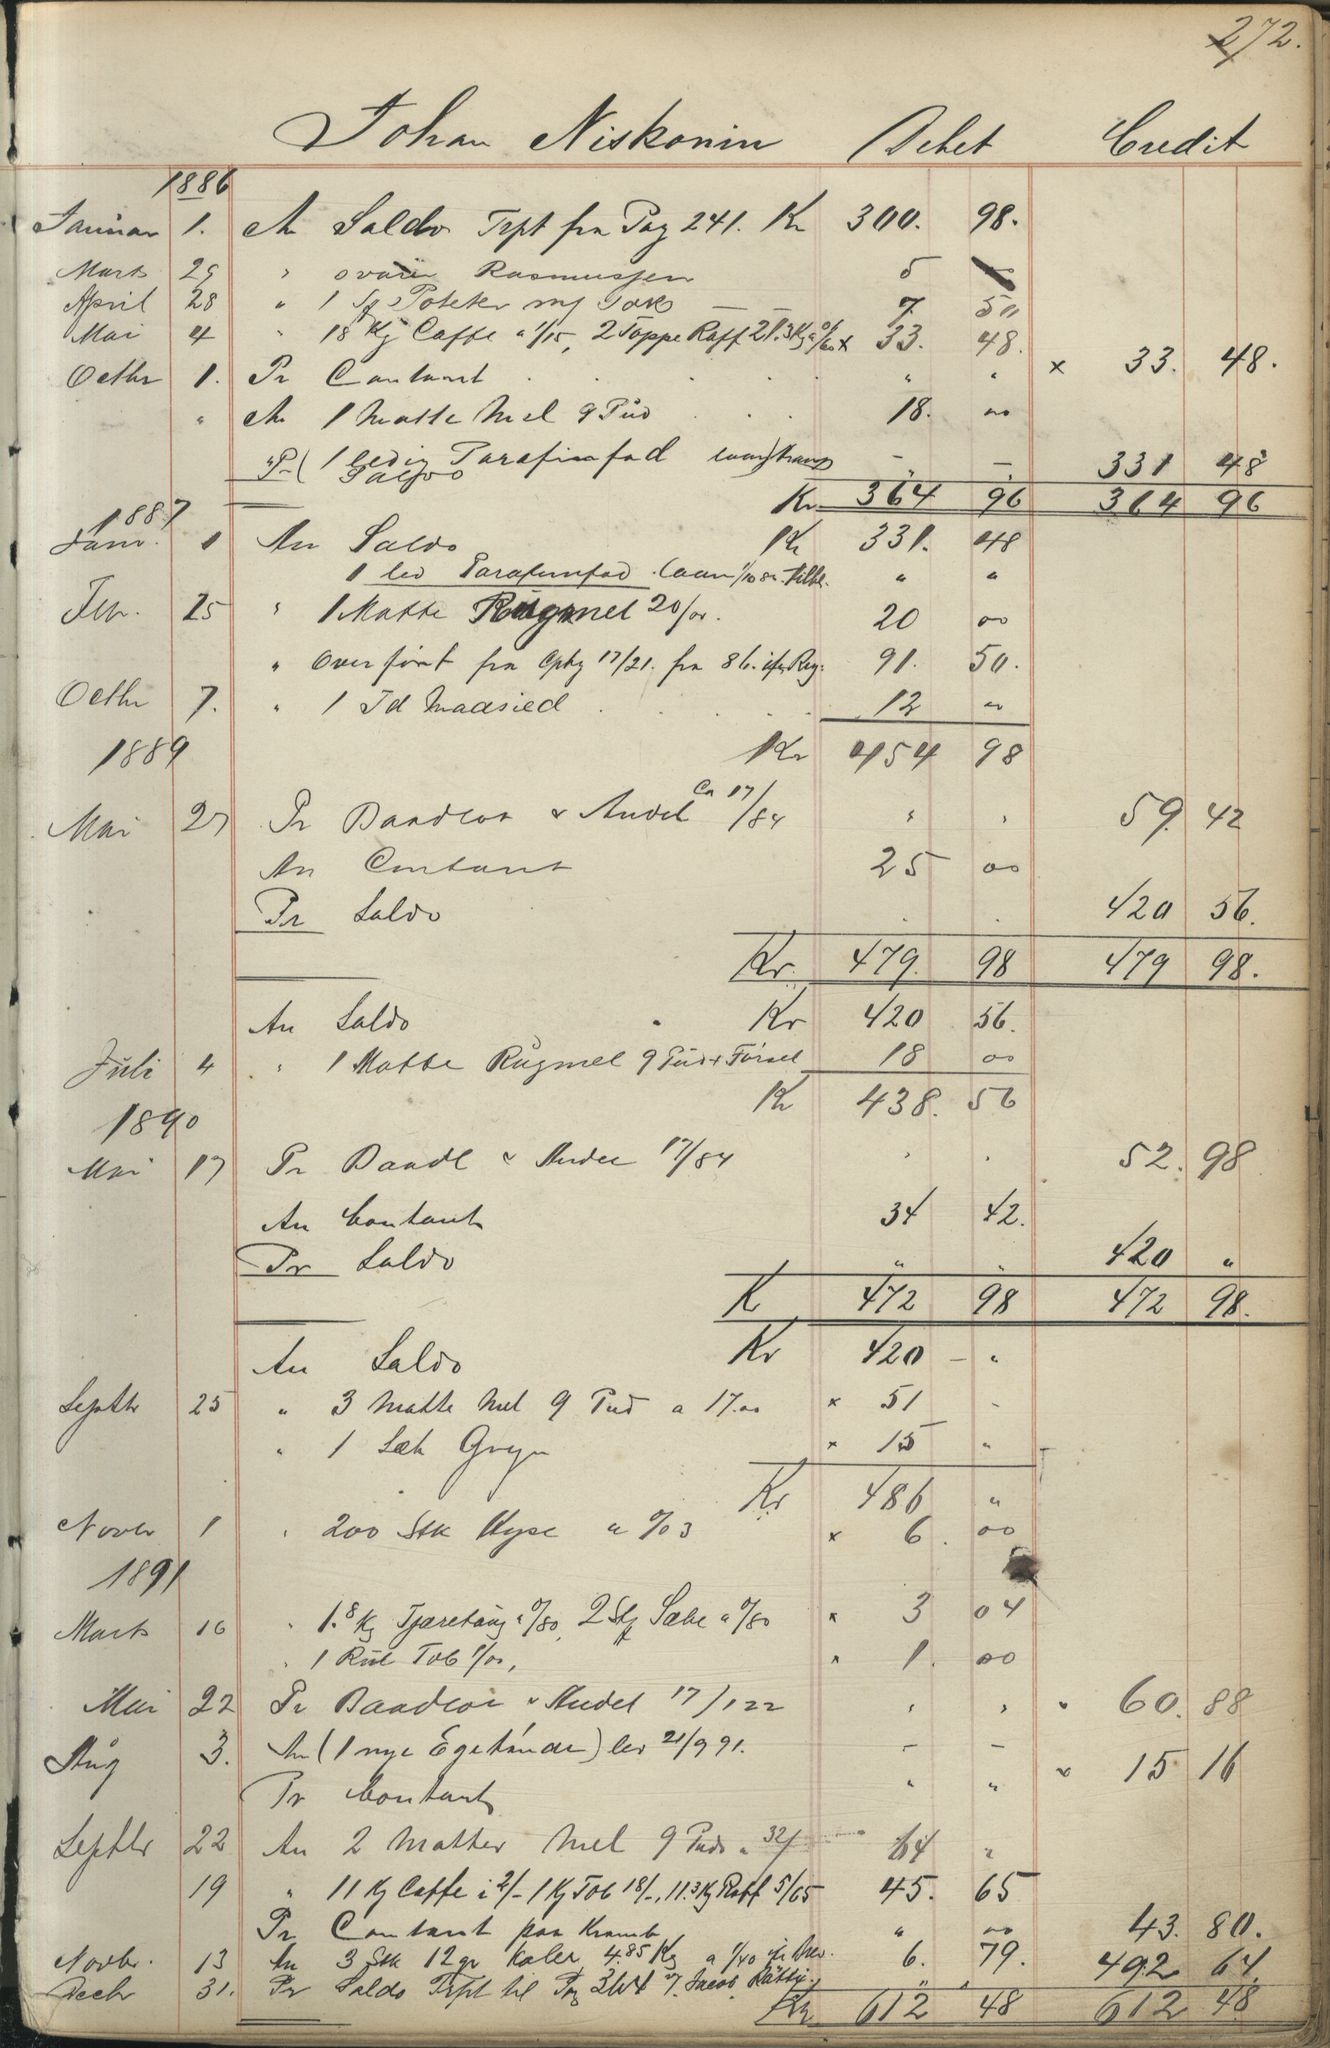 272.
Johan Niskonin Debet Credit
1886
Januar 1. An Saldo Trpt fra Pag 241. Kr 300. 98.
Marts 29 " Rasmussen 5
April 28 " 1 Poteter 7. 50
Mai 4 " 18 Kg Caffe a 1/15, 2 Toppe Raff x 33. 48.
Octbr 1. Pr Contant " " x 33. 48.
" An 1 Matte Mel 9 Pud 18. 00
Pr (1 ledig Parafinfad
Saldo " " 331 48
Kr 364 96 364 96
1887
Janr. 1 An Saldo Kr 331. 48
1 led Parafinfad laan 1/10 86. " "
Febr. 25 " 1 Matte Rugmel 20/00. 20 00
" Overført fra 17/21. fra 86. 91. 50.
Octbr 7. " 1 Td 12 00
1889 Kr 454 98
Mai 27 Pr Baadlot & Andel Co 17/84 " " 59. 42
An Contant 25 00
Pr Saldo 420 56.
Kr. 479. 98 479 98.
An Saldo Kr 420 56.
Juli 4 " 1 Matte Rugmel 9 Pud 18 00
Kr 438. 56
1890
Mai 17 Pr Baadl & Andel 17/84 " " 52. 98
An Contant 34 42.
Pr Saldo " " 420 "
K 472 98 472 98.
An Saldo Kr 420 - "
Septbr 25 " 3 Matte Mel 9 Pud a 17.00 x 51 -
" 1 Sæk Gryn x 15 "
Kr 486 "
Novbr 1 " 200 Stk Hyse a 0/03 x 6. 00
1891
Marts 16 " 1.8 Kg Tjæretaug a 0/80, 2 Stg Sæbe a 0/80 x 3 04
" 1 Rul Tob 1/00, x 1. 00
Mai 22 Pr Baadlot & Andel 17/122 " " " 60. 88
Aug 3. An (1 nye Egetønde) lev 21/9 91. - -
Pr Contant " " x 15 16
Septbr 22 An 2 Matter Mel 9 Pud a 32/ 64 "
19 " 11 Kg Caffe a 2/- 1 Kg Tob 18/-, 11.3 Kg Raff 5/65 45. 65
Pr Contant paa Kramb " 00 43. 80.
Novbr. 13 An 3 Stk 12 gr Kaler 4.85 Kg a 1/40 6. 79.
Decbr 31. Pr Saldo Trpt til Pag Jacob " " 492 64.
Kr 612 48 612 48